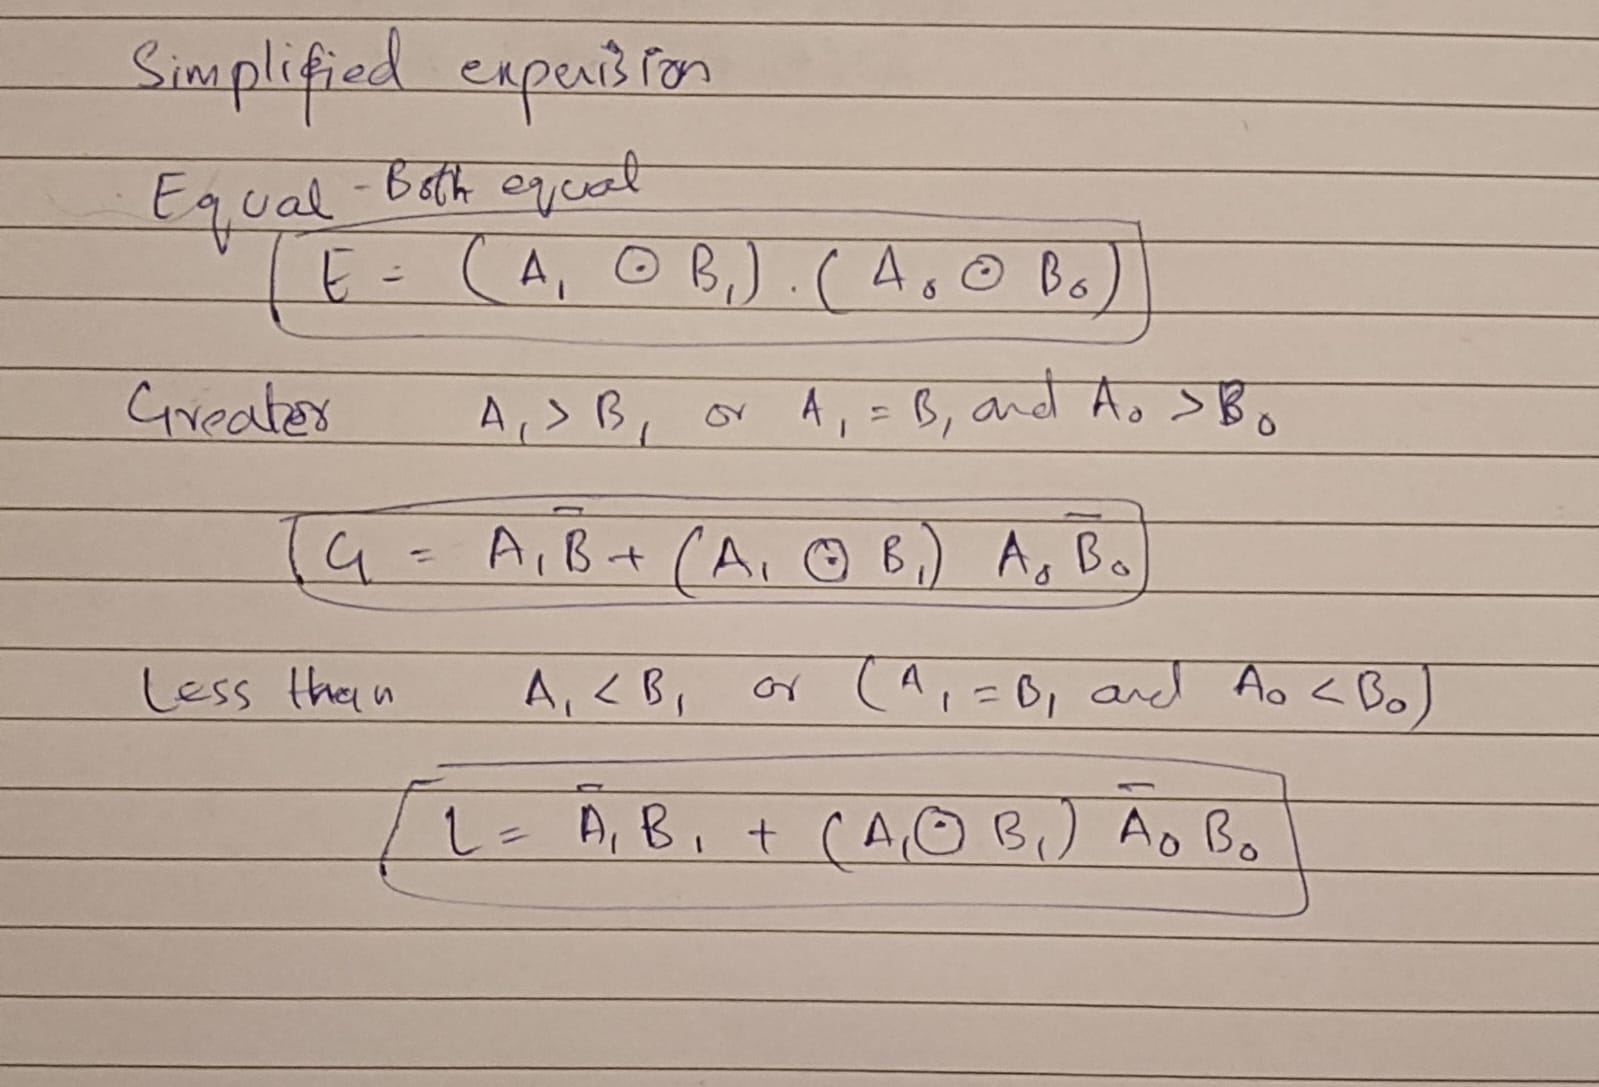 Simplified experision
Equal - Both equal
E = (A₁ ⊙ B₁) . (A₀ ⊙ B₀)
Greater A₁ > B₁ or A₁ = B₁ and A₀ > B₀
G = A₁B̄ + (A₁ ⊙ B₁) A₀ B̄₀
Less than A₁ < B₁ or (A₁ = B₁ and A₀ < B₀)
L = Ā₁ B₁ + (A₁ ⊙ B₁) Ā₀ B₀